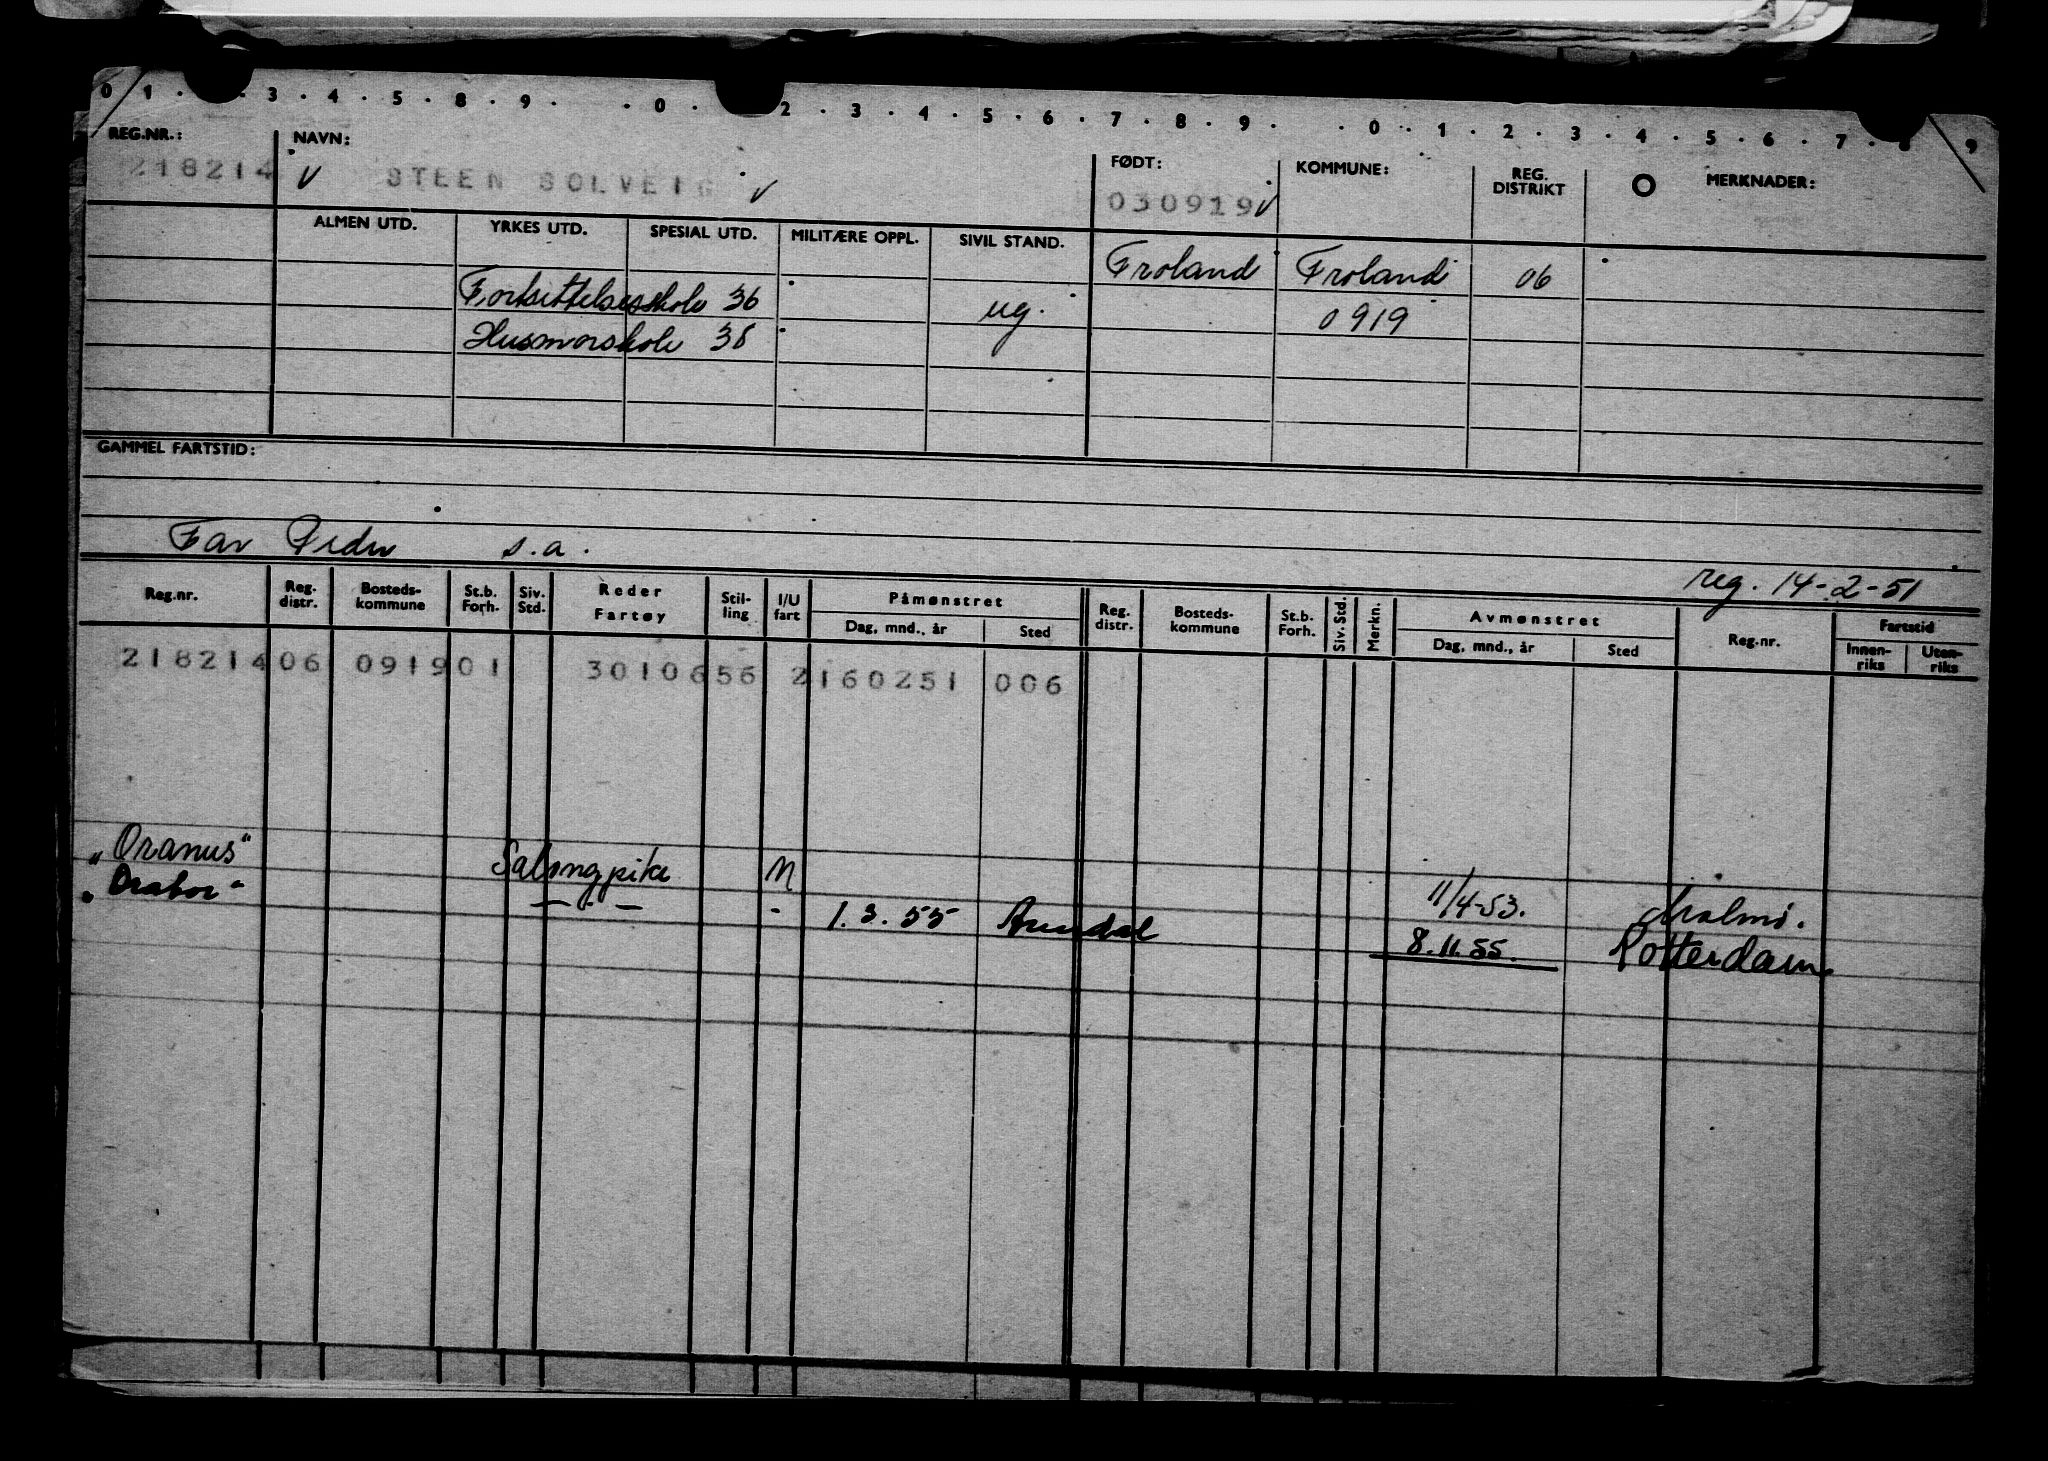 0 1 . . 3 . 4 . 5 . 8 . 9 . . 0 . 2 . 3 . 4 . 5 . 6 . 7 . 8 . 9 . . 0 . . 1 . 2 . 3 . 4 . 5 . 6 . 7 . 8 9
REG.NR.: NAVN: FØDT: KOMMUNE: REG. DISTRIKT O MERKNADER:
218214 V STEEN SOLVEIG V 030919 V
ALMEN UTD. YRKES UTD. SPESIAL UTD. MILITÆRE OPPL. SIVIL STAND.
Froland Froland 06
Fortsettelsesskole 36 ug. 0919
Husmorskole 38
GAMMEL FARTSTID:
Far Peder s.a.
reg. 14-2-51
Reg.nr. Reg. distr. Bosteds-kommune St.b. Forh. Siv. Std. Reder Fartøy Stil-ling I/U fart Påmønstret Dag, mnd., år Sted Reg. distr. Bosteds-kommune St.b. Forh. Siv. Std. Merkn. Avmønstret Dag, mnd., år Sted Reg.nr. Fartstid Innen-riks Uten-riks
218214 06 0919 01 3010656 2 160251 006
"Oranus" Salongpike M 11/4-53. Malmö.
"Drabor" — - — - 1.3.55 Arendal 8.11.55. Rotterdam